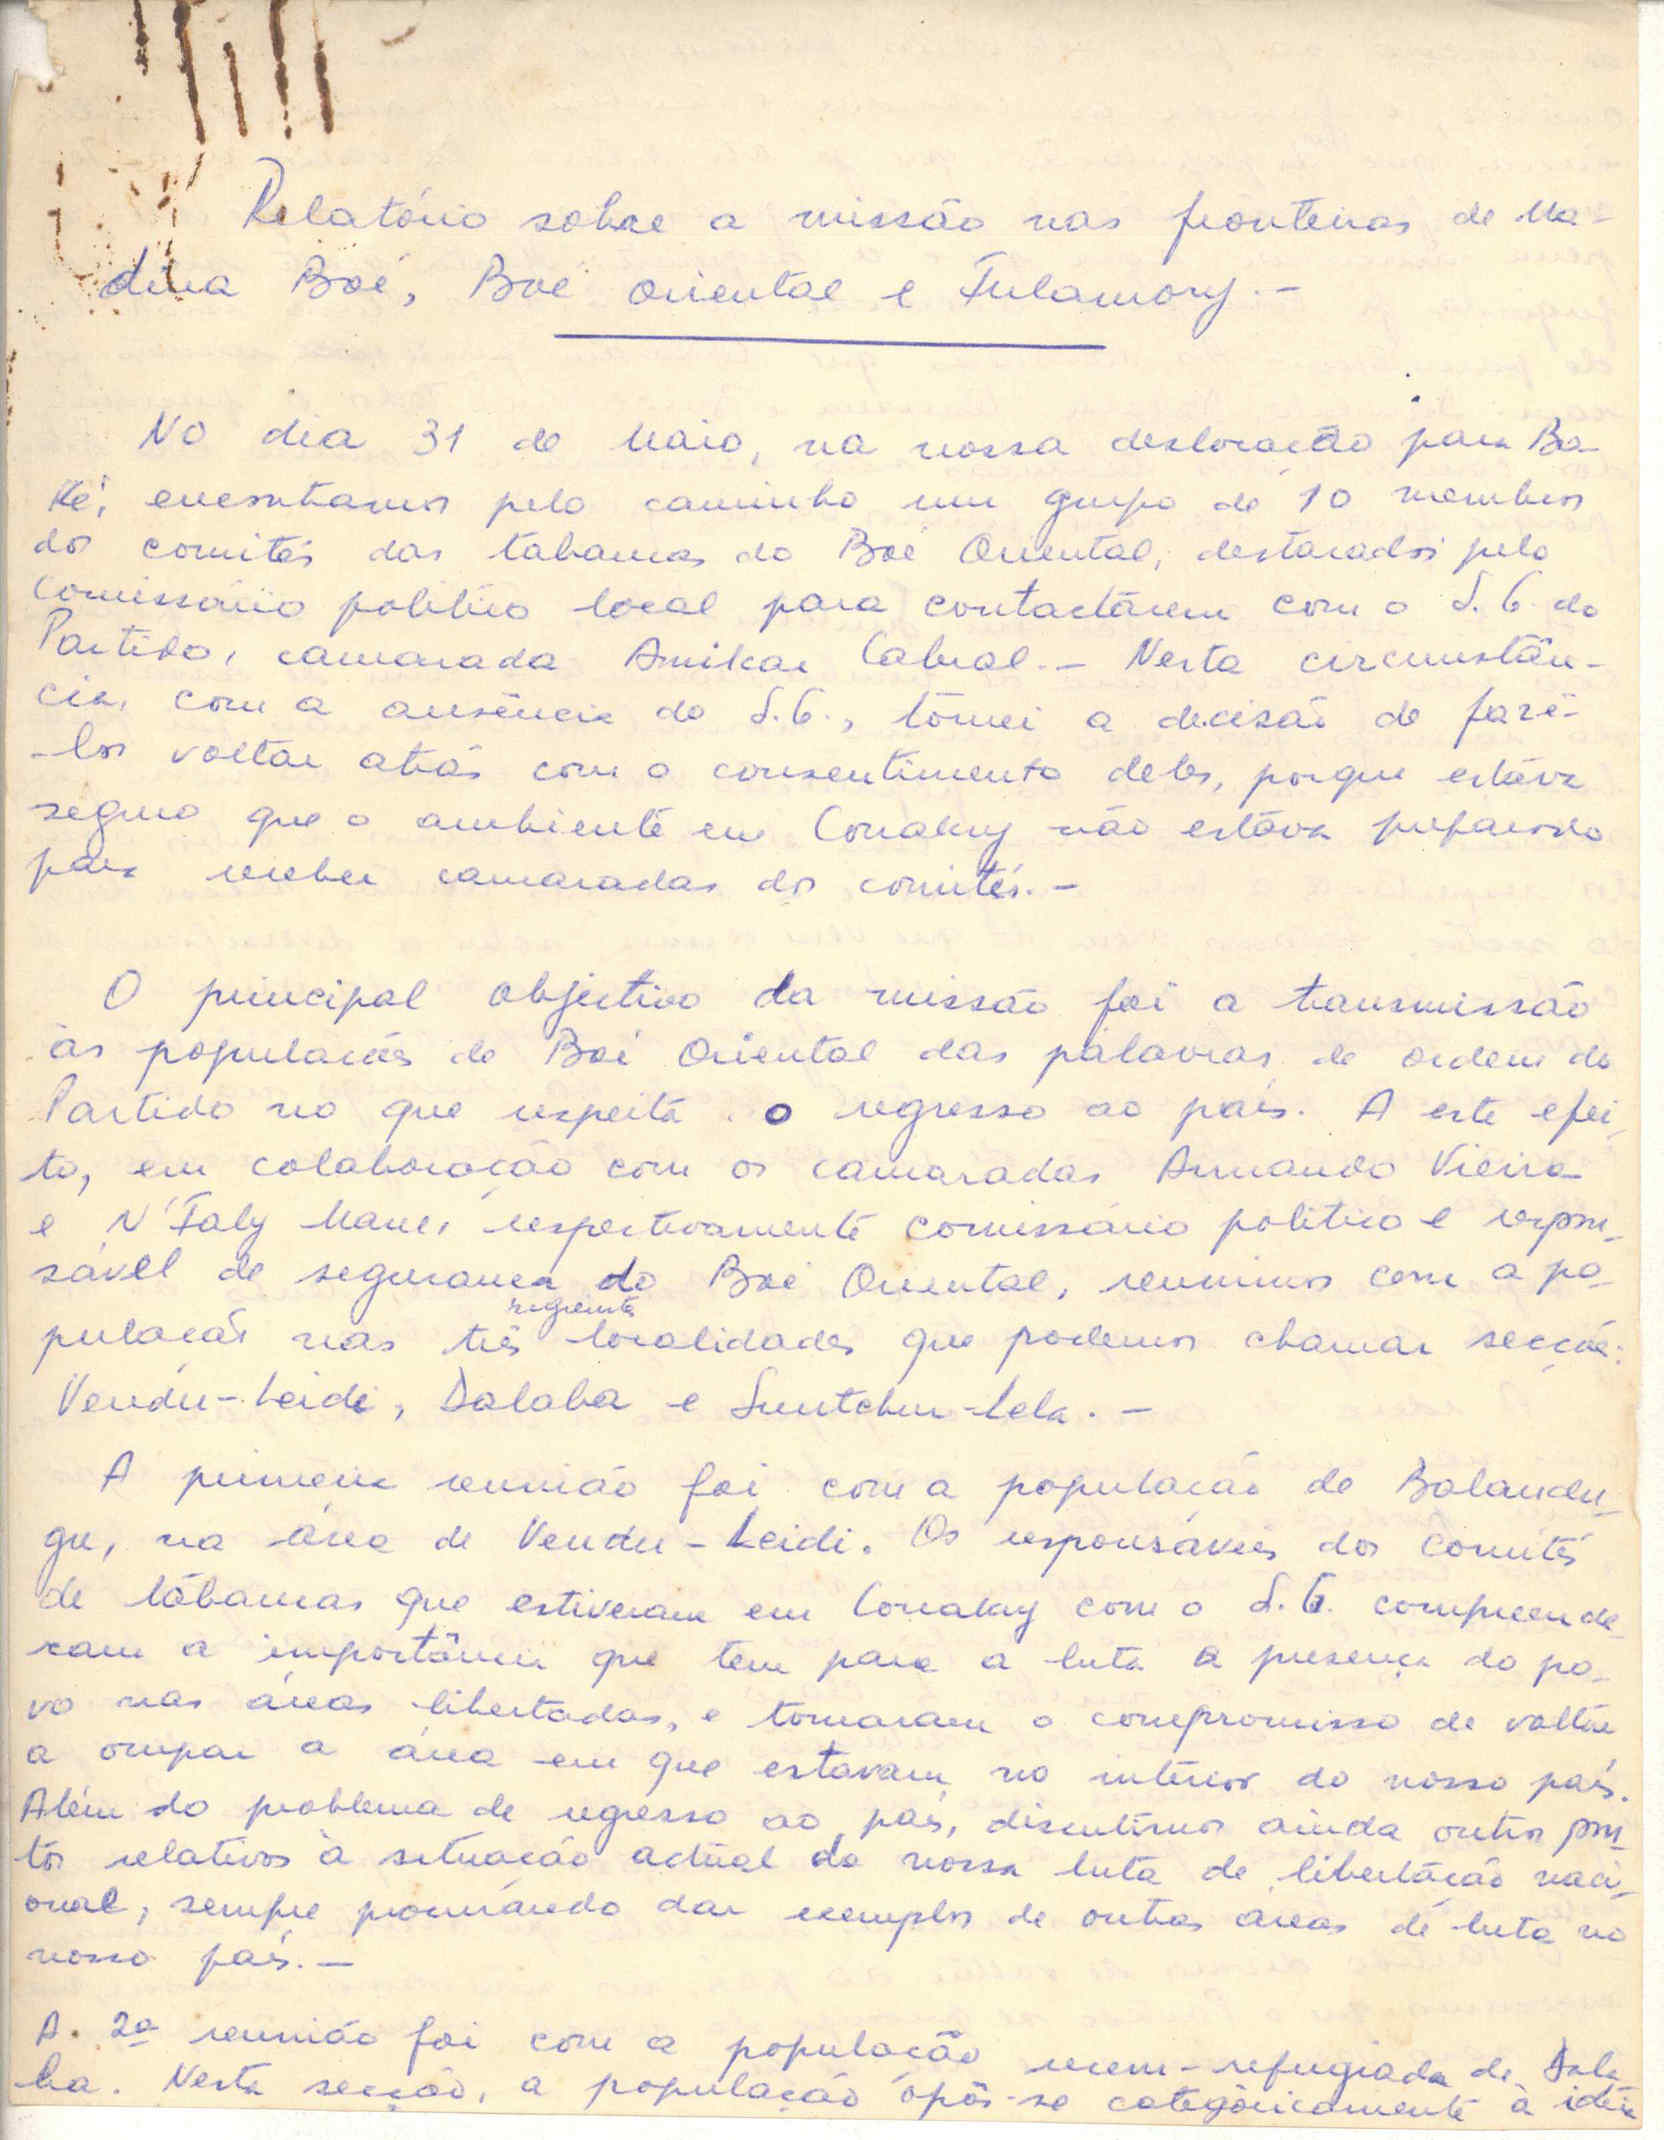 Relatório sobre a missão nas fronteiras de Ma-
dina Boé, Boé Oriental e Fulamory.-
No dia 31 de Maio, na nossa deslocação para Bo-
ké, encontramos pelo caminho um grupo de 10 membros
dos comités das tabancas do Boé Oriental, destacados pelo
Comissário politico local para contactárem com o S.G. do
Partido, camarada Amilcar Cabral.- Nesta circunstân-
cia, com a ausência do S.G., tomei a decisão de fazê-
-los voltar atrás com o consentimento deles, porque estáva
seguro que o ambiente em Conakry não estáva preparado
para receber camaradas dos comités.-
O principal objectivo da missão foi a transmissão
às populações de Boé Oriental das palavras de ordem do
Partido no que respeita o regresso ao país. A este efei-
to, em colaboração com os camaradas Armando Vieira
e N'Faly Mané, respectivamente comissário politico e respon-
sável de segurança do Boé Oriental, reunimos com a po-
pulação nas três seguintes localidades que podemos chamar secções:
Vendu-Leidi, Dalaba e Suntchu-Lela.-
A primeira reunião foi com a população de Balandu-
gu, na área de Vendu-Leidi. Os responsáveis dos Comités
de tábancas que estiveram em Conakry com o S.G. compreende-
ram a importância que tem para a luta a presença do po-
vo nas áreas libertadas, e tomaram o compromisso de voltar
a ocupar a área em que estavam no interior do nosso país.
Além do problema de regresso ao país, discutimos ainda outros pon-
tos relativos à situação actual da nossa luta de libertação naci-
onal, sempre procurando dar exemplos de outras áreas de luta no
nosso país.-
A 2ª reunião foi com a população recem-refugiada de Dala-
ba. Nesta secção, a população opôs-se categòricamente à idéia